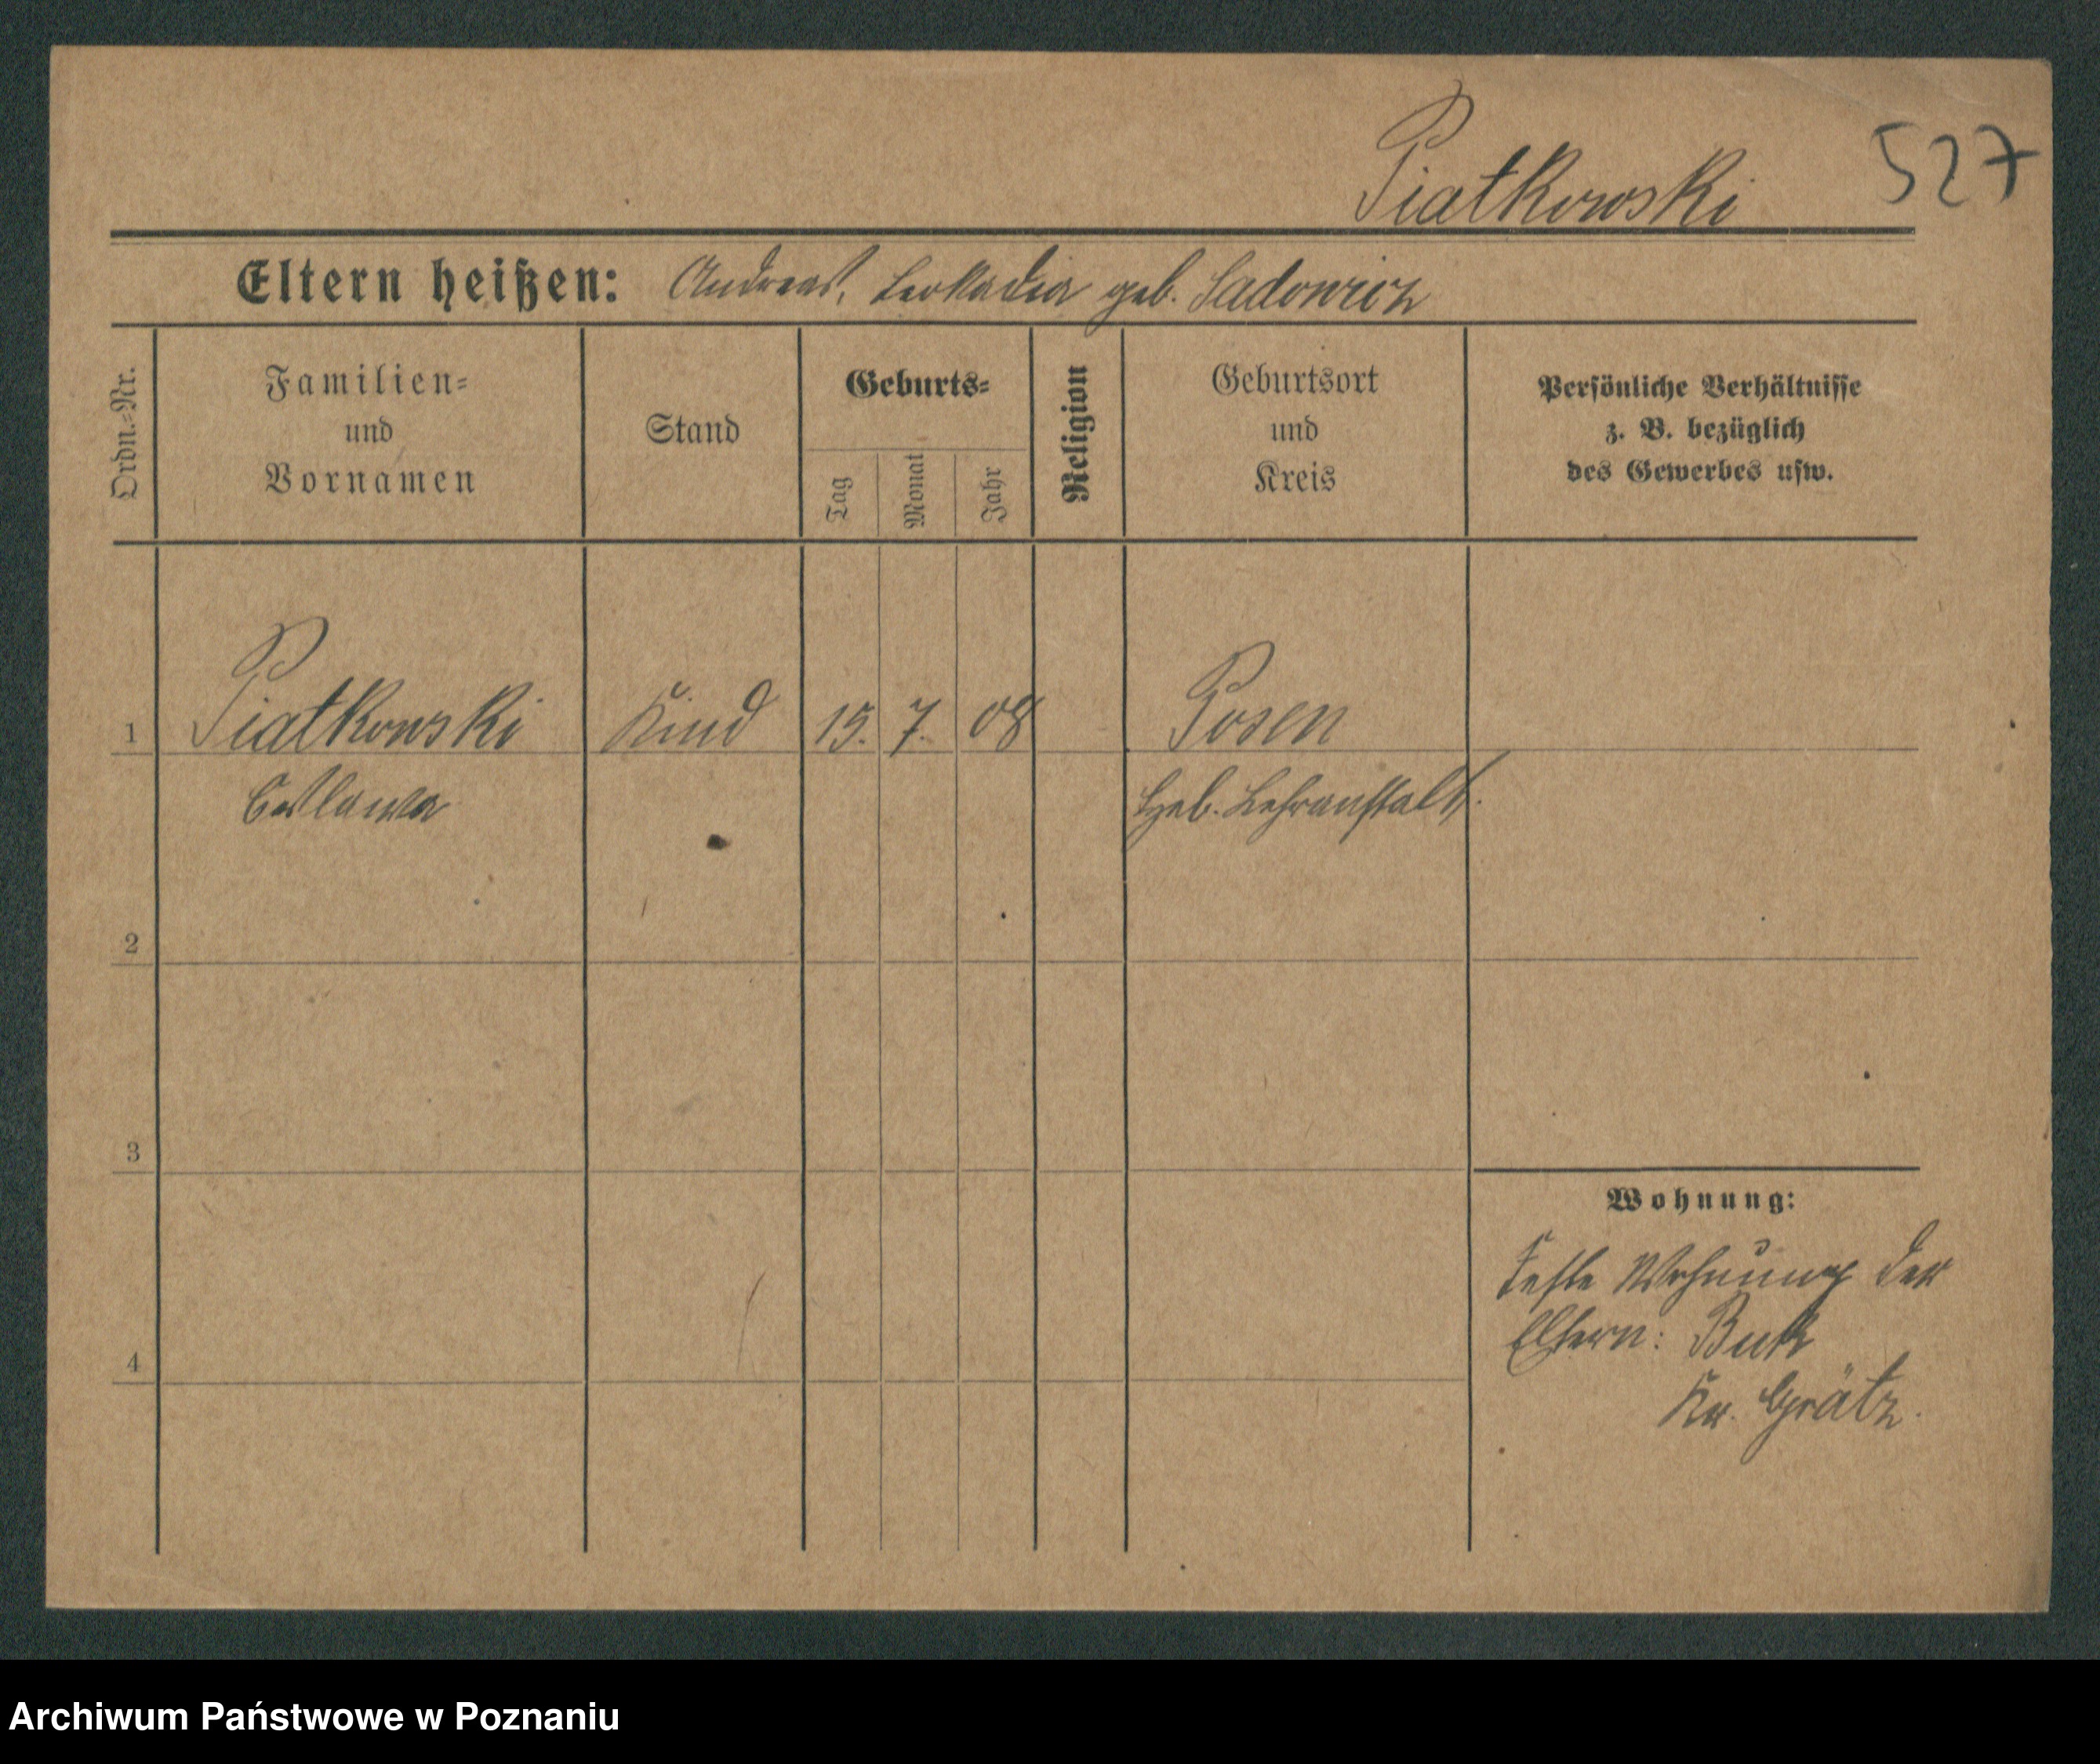 Piatkowski 527
Eltern heißen: Andreas, Leokadia geb. Sadowicz
Ordn.=Nr.
Familien=
und
Vornamen
Stand
Geburts=
Tag
Monat
Jahr
Religion
Geburtsort
und
Kreis
Persönliche Verhältnisse
z. B. bezüglich
des Gewerbes usw.
1 Piatkowski Kind 15. 7. 08 Posen
Heb. Lehranstalt.
2
3
4
Wohnung:
Feste Wohnung der
Eltern: Buk
Kr. Grätz.
Archiwum Państwowe w Poznaniu